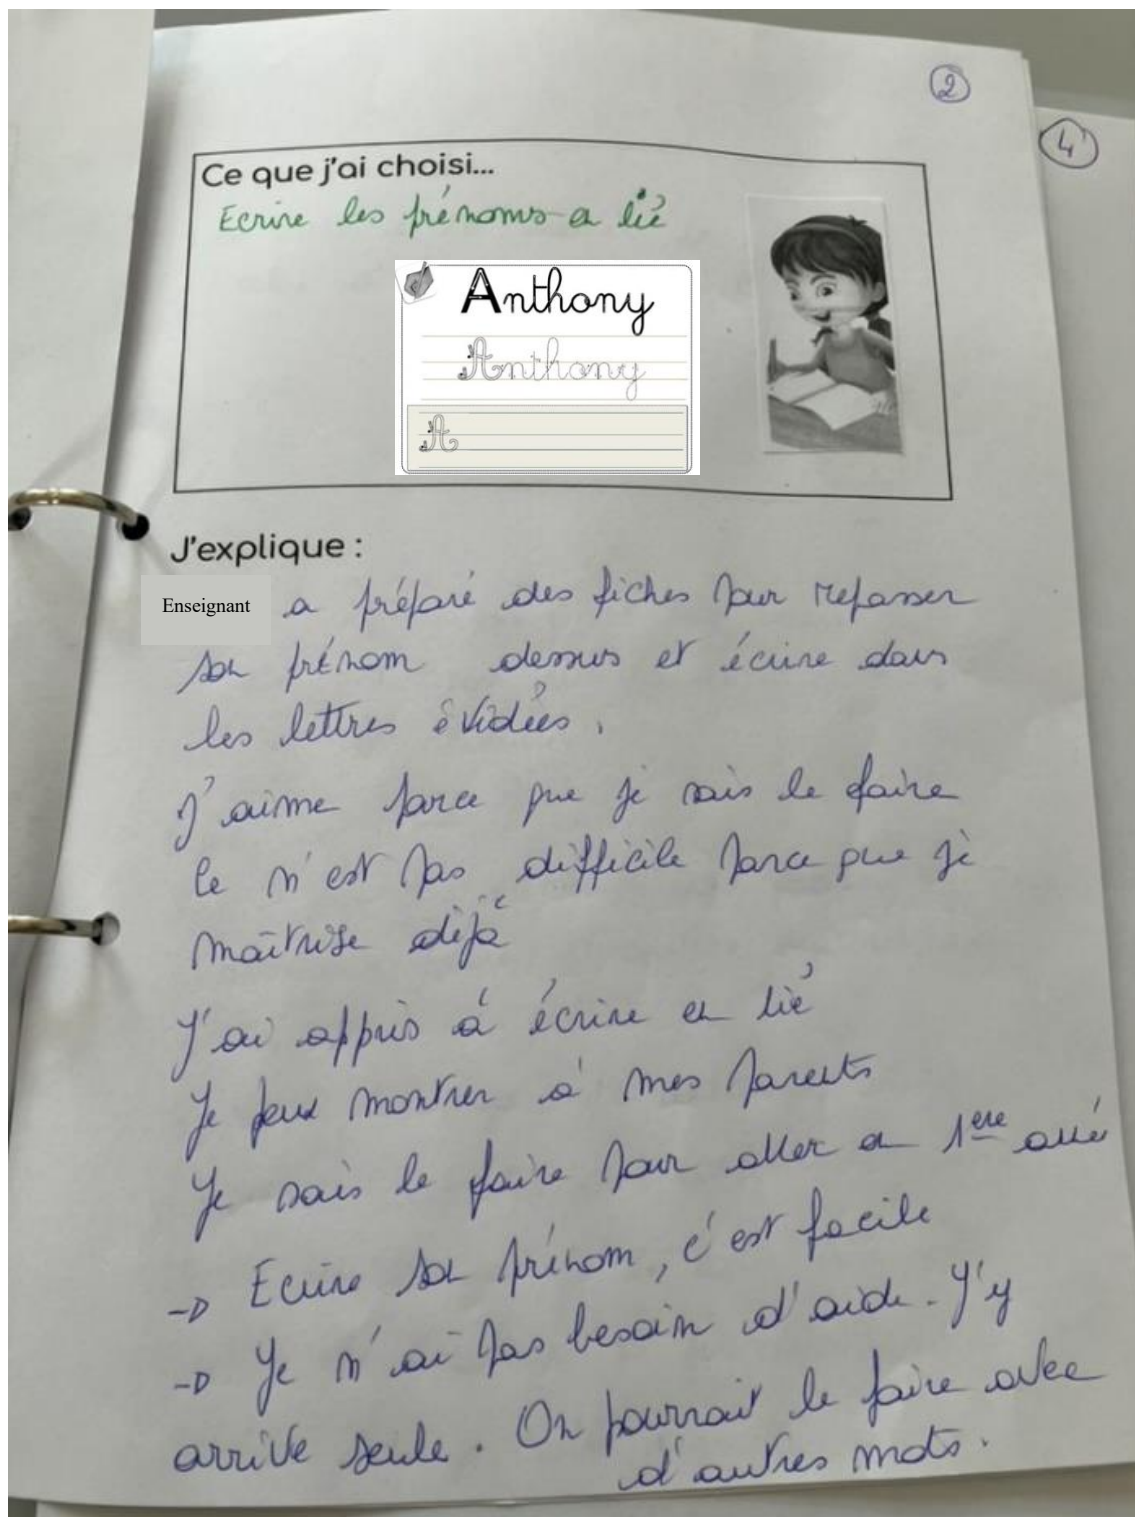 2
4
Ce que j'ai choisi...
Ecrire les prénoms en lié
Anthony
Anthony
A
J'explique :
Enseignant a préparé des fiches pour repasser
son prénom dessus et écrire dans
les lettres évidées.
J'aime parce que je sais le faire
Ce n'est pas difficile parce que je
maîtrise déjà
J'ai appris à écrire en lié
Je peux montrer à mes parents
Je sais le faire pour aller en 1ère année
→ Ecrire son prénom, c'est facile
→ Je n'ai pas besoin d'aide. J'y
arrive seule. On pourrait le faire avec
d'autres mots.